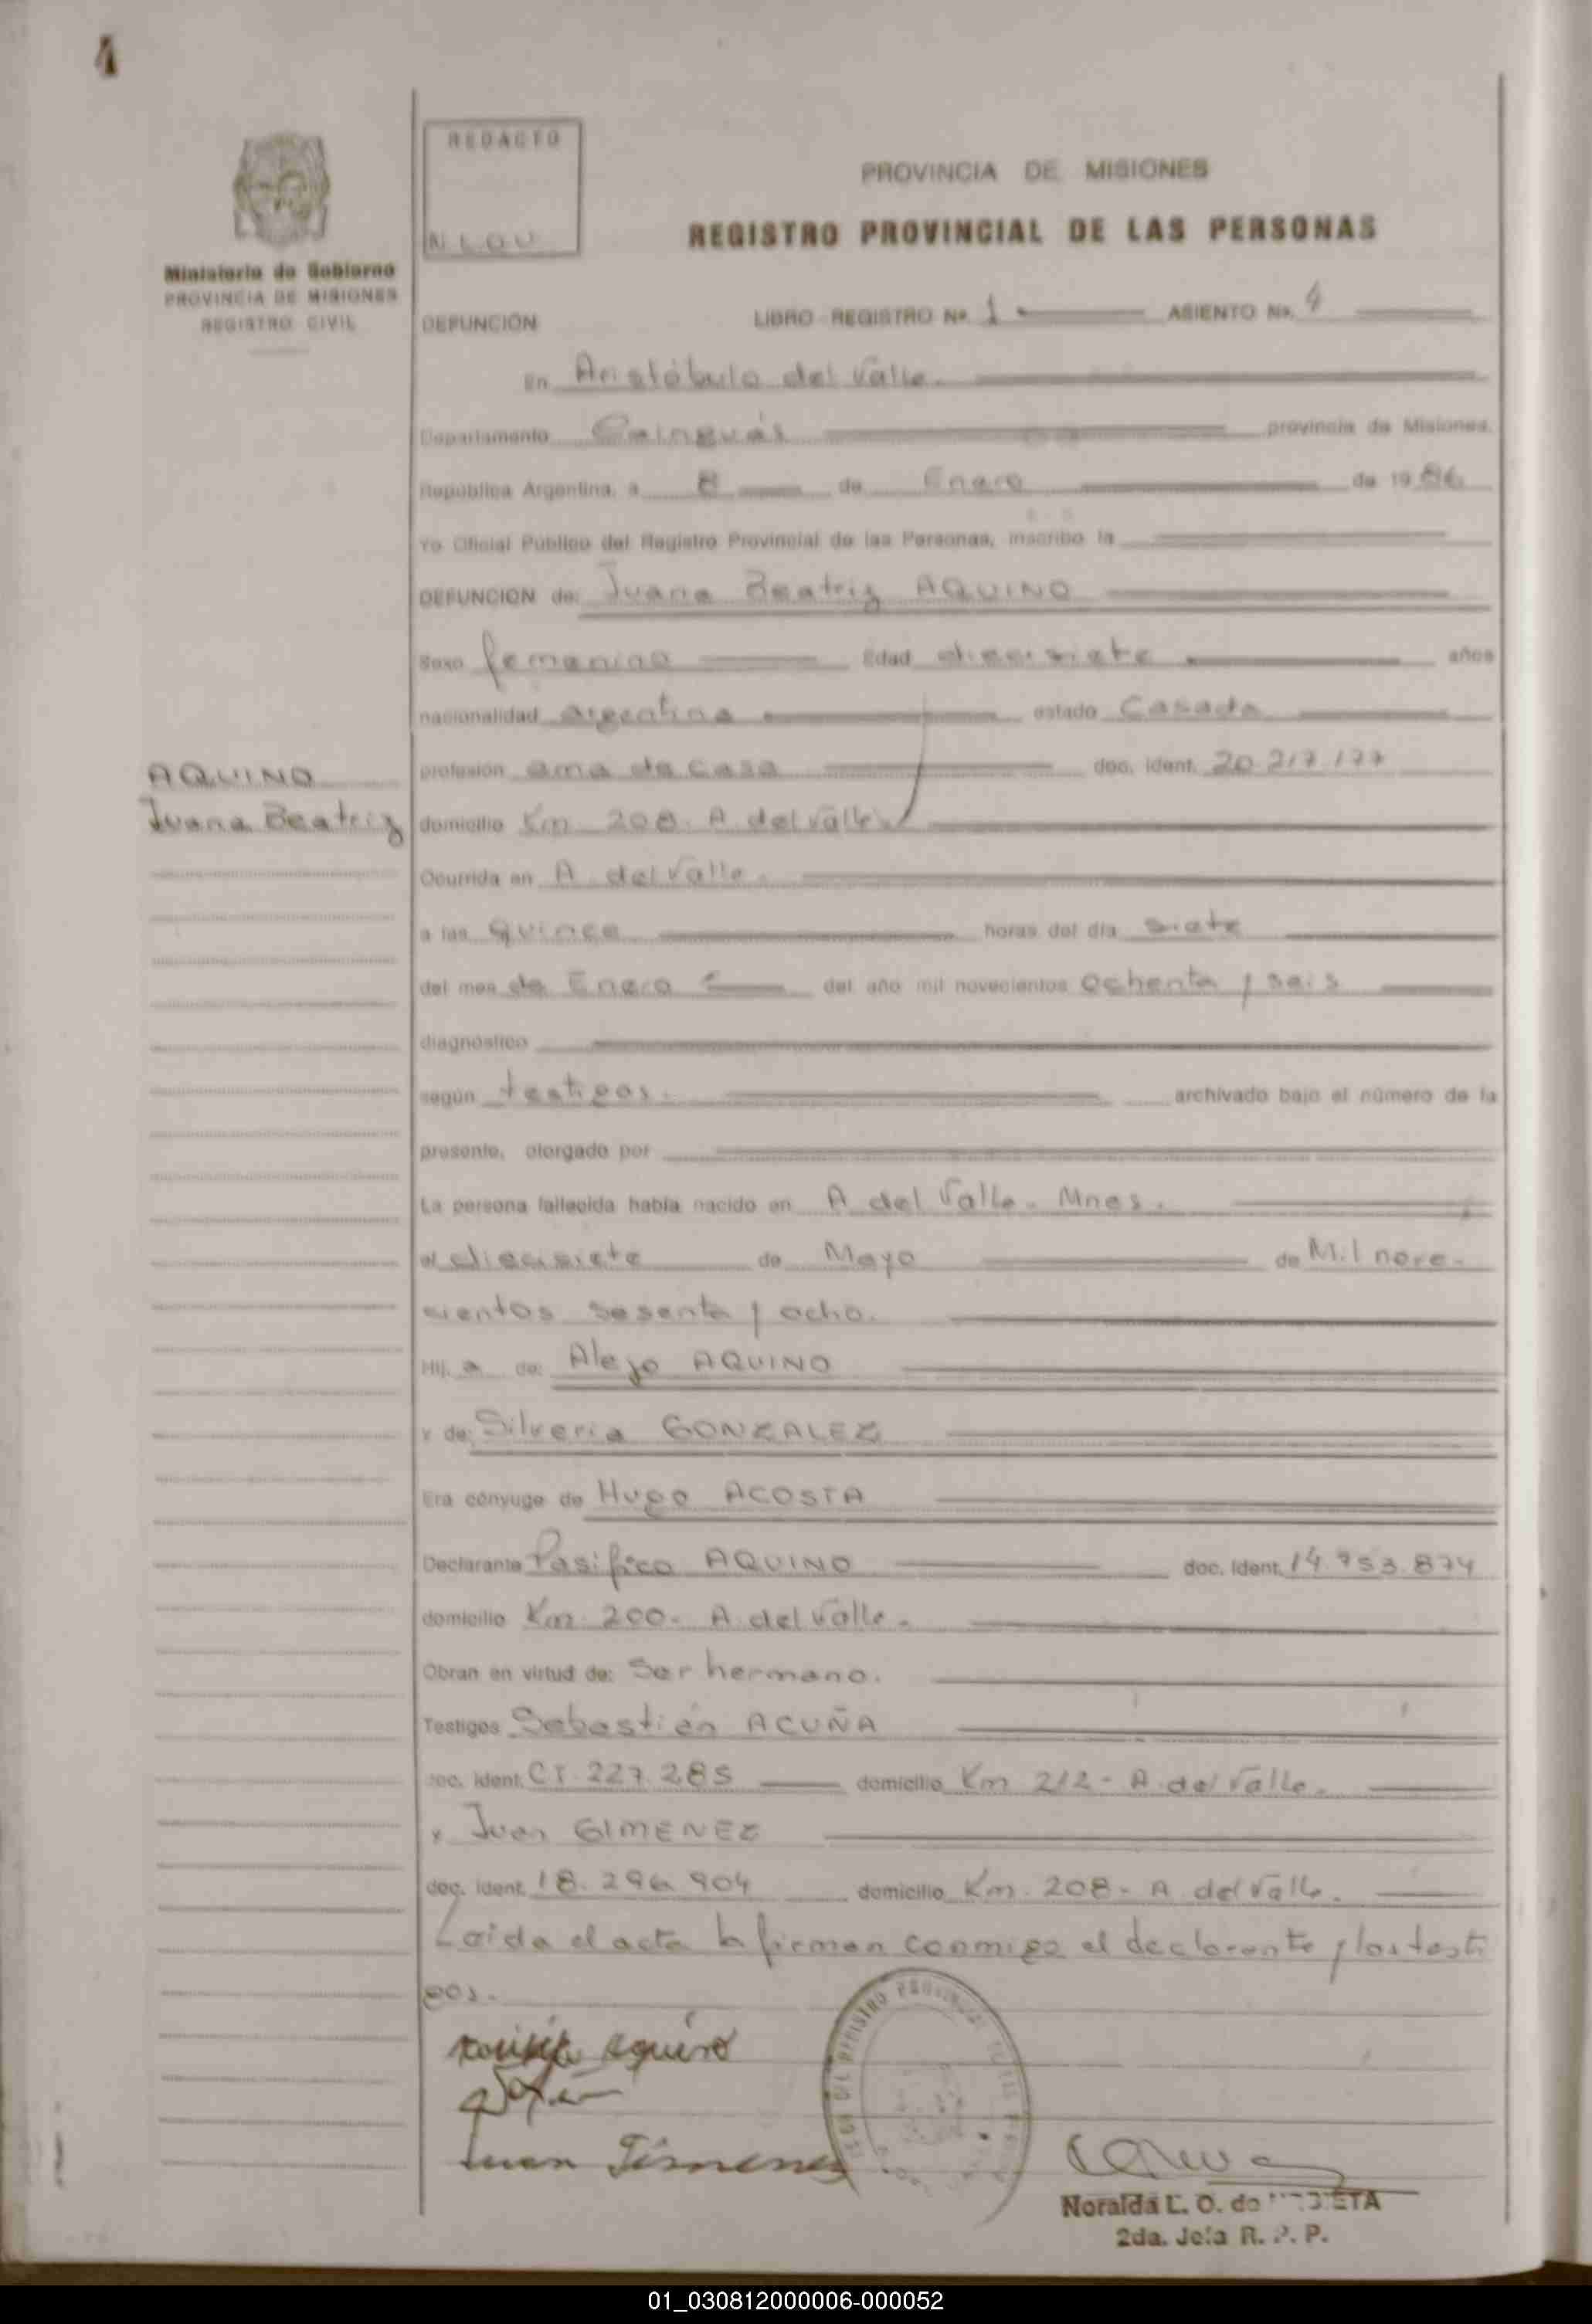 4
REDACTO
N L O U
PROVINCIA DE MISIONES
REGISTRO PROVINCIAL DE LAS PERSONAS
Ministerio de Gobierno
PROVINCIA DE MISIONES
REGISTRO CIVIL
DEFUNCION LIBRO REGISTRO Nº 1 ASIENTO Nº 4
En Aristóbulo del Valle.
Departamento Cainguás provincia de Misiones.
República Argentina, a 8 de Enero de 1986
Yo Oficial Público del Registro Provincial de las Personas, inscribo la
DEFUNCION de: Juana Beatriz AQUINO
Sexo femenino Edad diecisiete años
nacionalidad argentina estado Casada
AQUINO
Juana Beatriz
profesión ama de casa doc. ident. 20.217.177
domicilio Km 208. A. del Valle
Ocurrida en A. del Valle.
a las quince horas del día siete
del mes de Enero del año mil novecientos ochenta y seis
diagnóstico
según testigos. archivado bajo el número de la
presente, otorgado por
La persona fallecida había nacido en A del Valle. Mnes.
el diecisiete de Mayo de Mil nove-
sientos sesenta y ocho.
Hij a de: Alejo AQUINO
y de: Silveria GONZALEZ
Era cónyuge de Hugo ACOSTA
Declarante Pasifico AQUINO doc. ident. 14.753.874
domicilio Km 200. A. del Valle.
Obran en virtud de: Ser hermano.
Testigos Sebastián ACUÑA
doc. ident. CI. 227.285 domicilio Km 212 - A. del Valle.
y Juan GIMENEZ
doc. ident. 18.296.904 domicilio Km. 208 - A del Valle.
Leida el acta la firman conmigo el declarante y los testi
gos.
aquino
Juan Jimenez
Noralda L. O. de
2da. Jefa R. P. P.
01_030812000006-000052